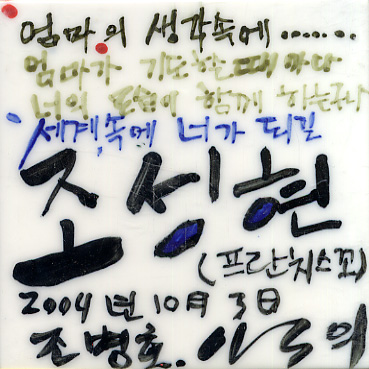 엄마의 생각속에......
엄마가 기도할때마다
너의 모습이 함께 하는구나
세계속에 너가 되길
조성현
(프란치스꼬)
2004년 10月 3日
조병호.